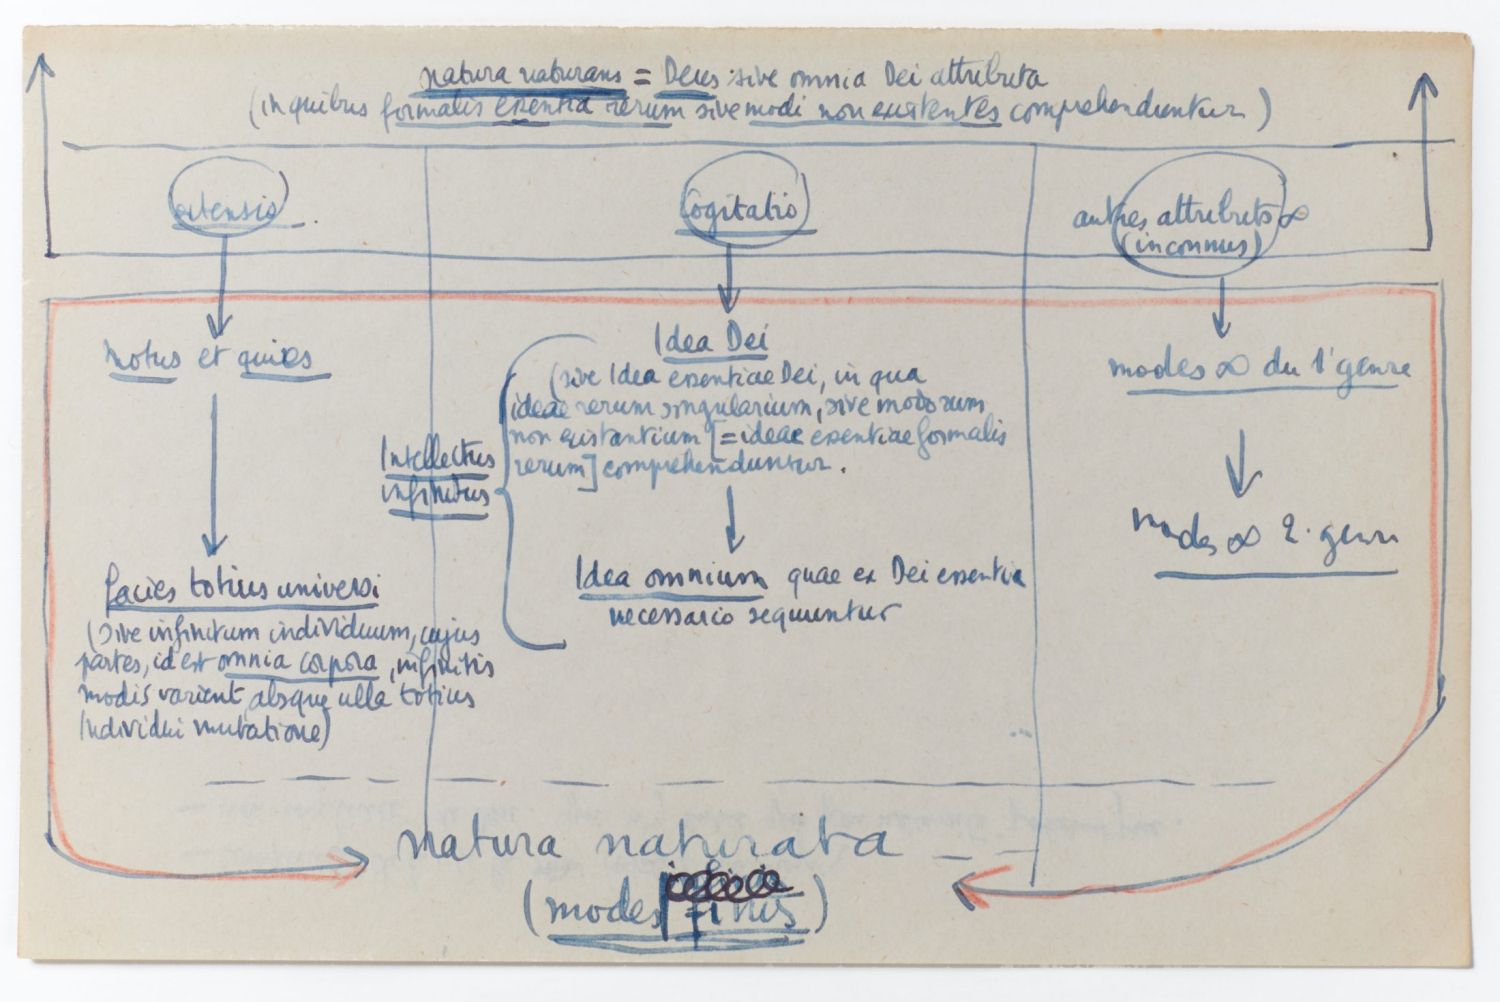 natura naturans = Deus sive omnia Dei attributa
(in quibus formalis essentia rerum sive modi non existentes comprehenduntur)
extensio
Cogitatio
autres attributs ∞
(inconnus)
motus et quies
Idea Dei
(sive Idea essentiae Dei, in qua
ideae rerum singularium, sive modorum
non existantium [= ideae essentiae formalis
rerum] comprehenduntur.
Intellectus
infinitus
modes ∞ du 1° genre
modes ∞ 2° genre
facies totius universi
(sive infinitum individuum, cujus
partes, id est omnia corpora, infinitis
modis varient, absque ulla totius
Individui mutatione)
Idea omnium quae ex Dei essentia
necessario sequuntur
natura naturata
(modes finis)